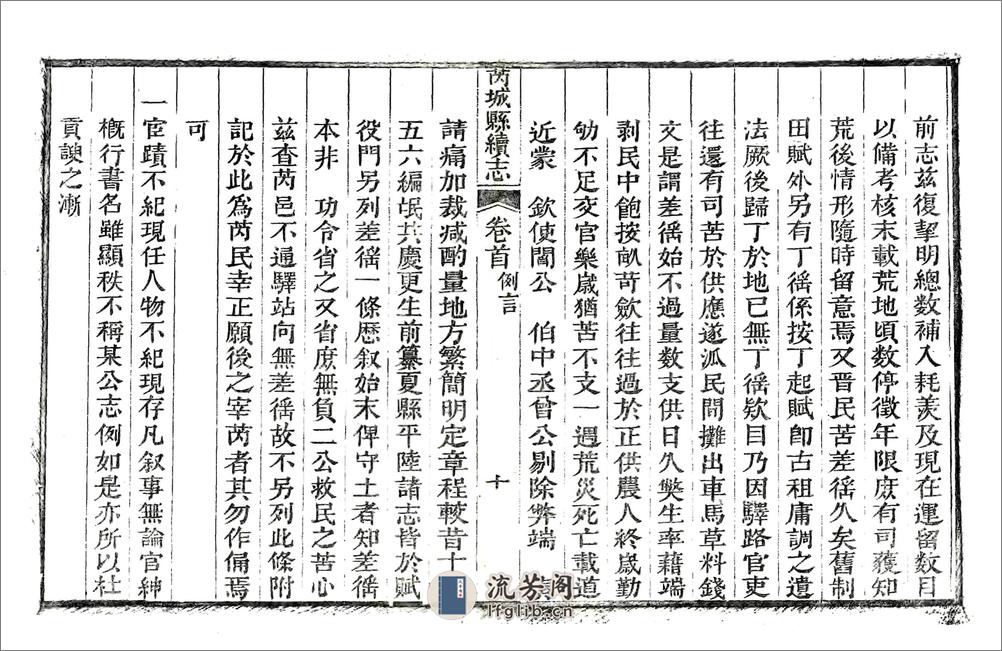 前志茲復掣明總數補入耗羨及現在運留數目
以備考核末載荒地頃數停徵年限庶有司覆知
荒後情形隨時留意焉又晋民苦差徭久矣舊制
田賦外另有丁徭係按丁起賦卽古租庸調之遺
法厥後歸丁於地已無丁徭欵目乃因驛路官吏
往還有司苦於供應遂派民間攤出車馬草料錢
文是謂差徭始不過量數支供日久獘生率藉端
剥民中飽按畝苛歛往往過於正供農人終歲勤
劬不足交官樂歲猶苦不支一遇荒災死亡載道
近蒙　欽使閻公　伯中丞曾公剔除弊端
芮城縣續志　卷首　例言　十
請痛加裁减酌量地方繁簡明定章程較昔十
五六編氓共慶更生前纂夏縣平陸諸志皆於賦
役門另列差徭一條歷叙始末俾守土者知差徭
本非　功令省之又省庶無負二公救民之苦心
兹查芮邑不通驛站向無差徭故不另列此條附
記於此爲芮民幸正願後之宰芮者其勿作俑焉
可
一宦蹟不紀現任人物不紀現存凡叙事無論官紳
槪行書名雖顯秩不稱某公志例如是亦所以杜
貢諛之漸
流芳阁
lfglib.cn